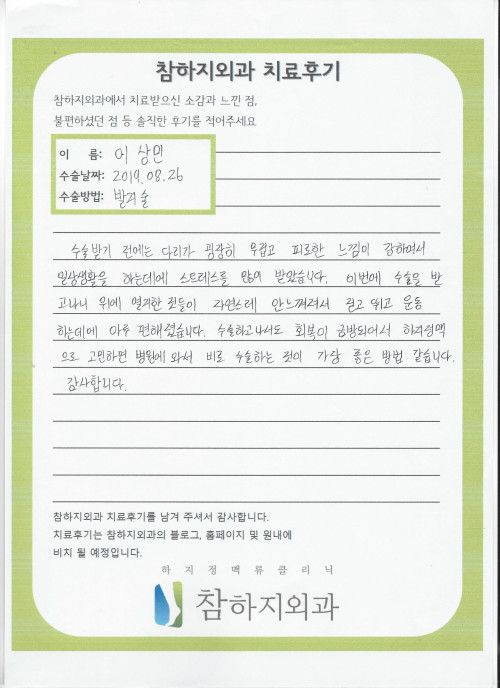 참하지외과 치료후기
참하지외과에서 치료받으신 소감과 느낀 점,
불편하셨던 점 등 솔직한 후기를 적어주세요
이 름: 이 상민
수술날짜: 2019. 08. 26
수술방법: 발거술
수술받기 전에는 다리가 굉장히 무겁고 피로한 느낌이 강하여서
일상생활을 하는데에 스트레스를 많이 받았습니다. 이번에 수술을 받
고나니 위에 열거한 것들이 자연스레 안느껴져서 걷고 뛰고 운동
하는데에 아주 편해졌습니다. 수술하고나서도 회복이 금방되어서 하지정맥
으로 고민하면 병원에 와서 바로 수술하는 것이 가장 좋은 방법 같습니다.
감사합니다.
참하지외과 치료후기를 남겨 주셔서 감사합니다.
치료후기는 참하지외과의 블로그, 홈페이지 및 원내에
비치 될 예정입니다.
하지정맥류클리닉
참하지외과